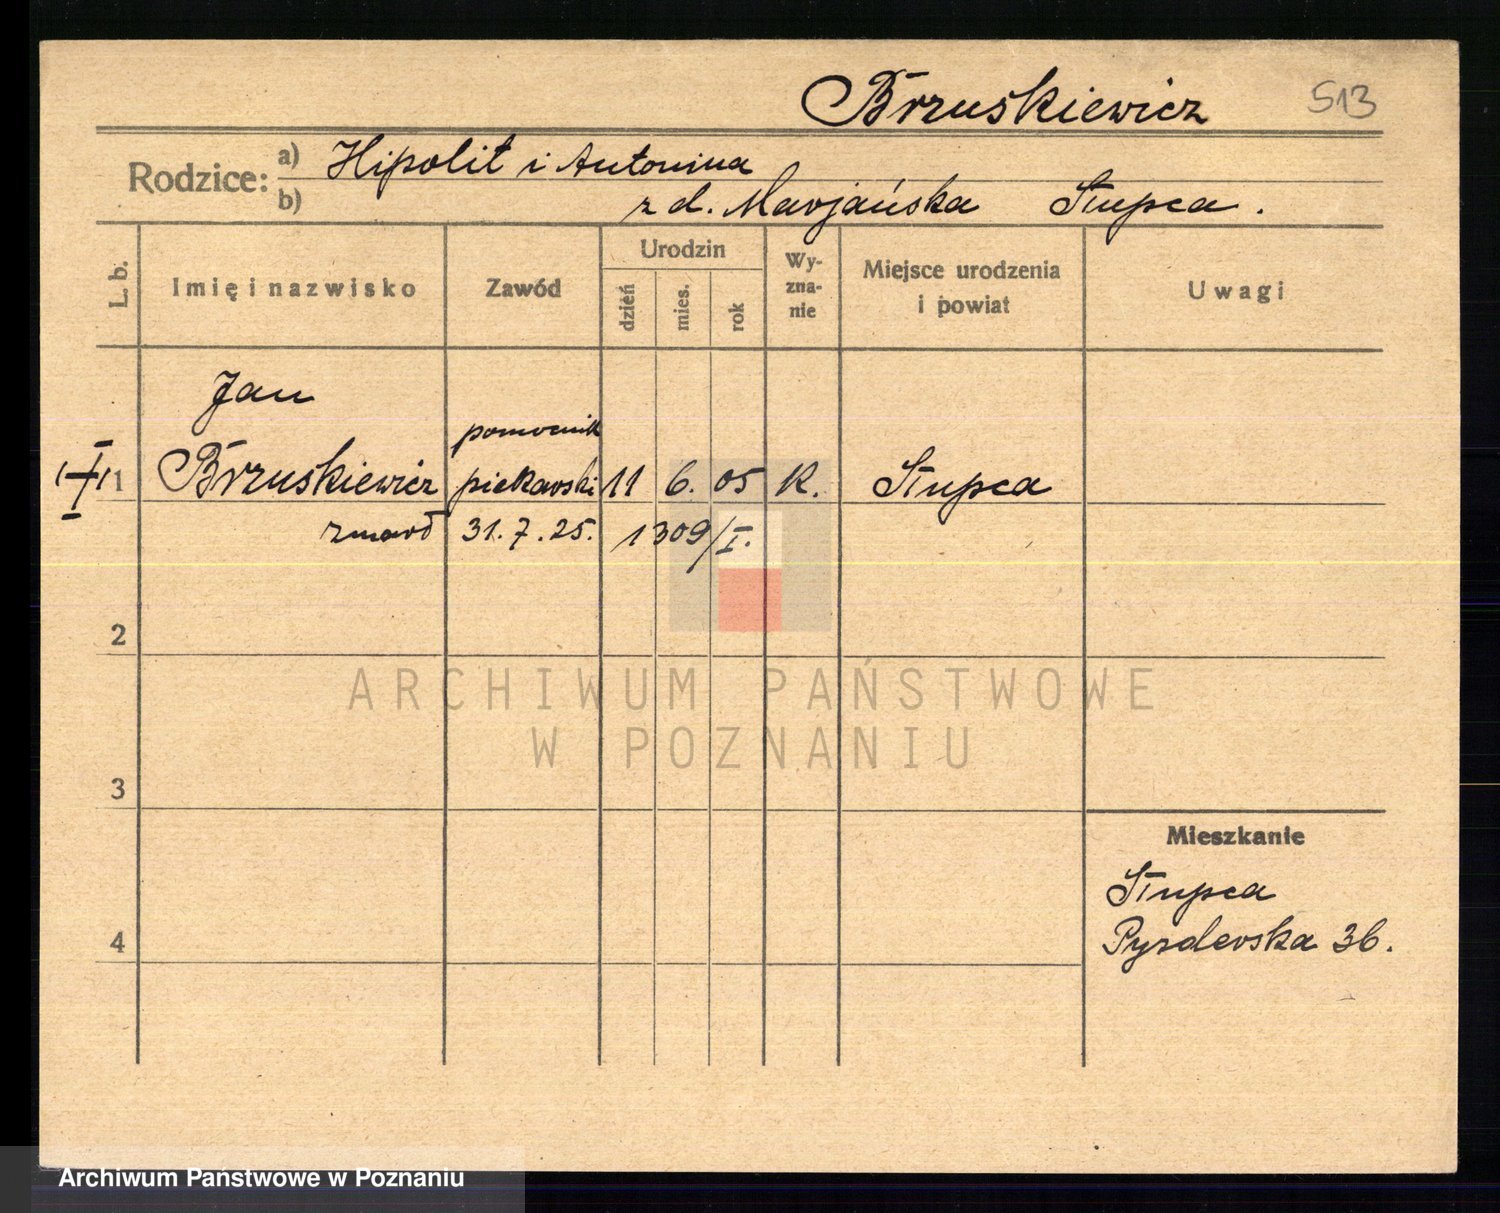 Brzuskiewicz 513
Rodzice: a) Hipolit i Antonina
b) z d. Marjańska Słupca.
L. b. Imię i nazwisko Zawód Urodzin Wy-zna-nie Miejsce urodzenia i powiat Uwagi
dzień mies. rok
Jan
pomocnik
1 Brzuskiewicz piekarski 11 6. 05 K. Słupca
zmarł 31.7.25. 1309/I.
2
ARCHIWUM PAŃSTWOWE
W POZNANIU
3
Mieszkanie
Słupca
4 Pyzderska 36.
Archiwum Państwowe w Poznaniu